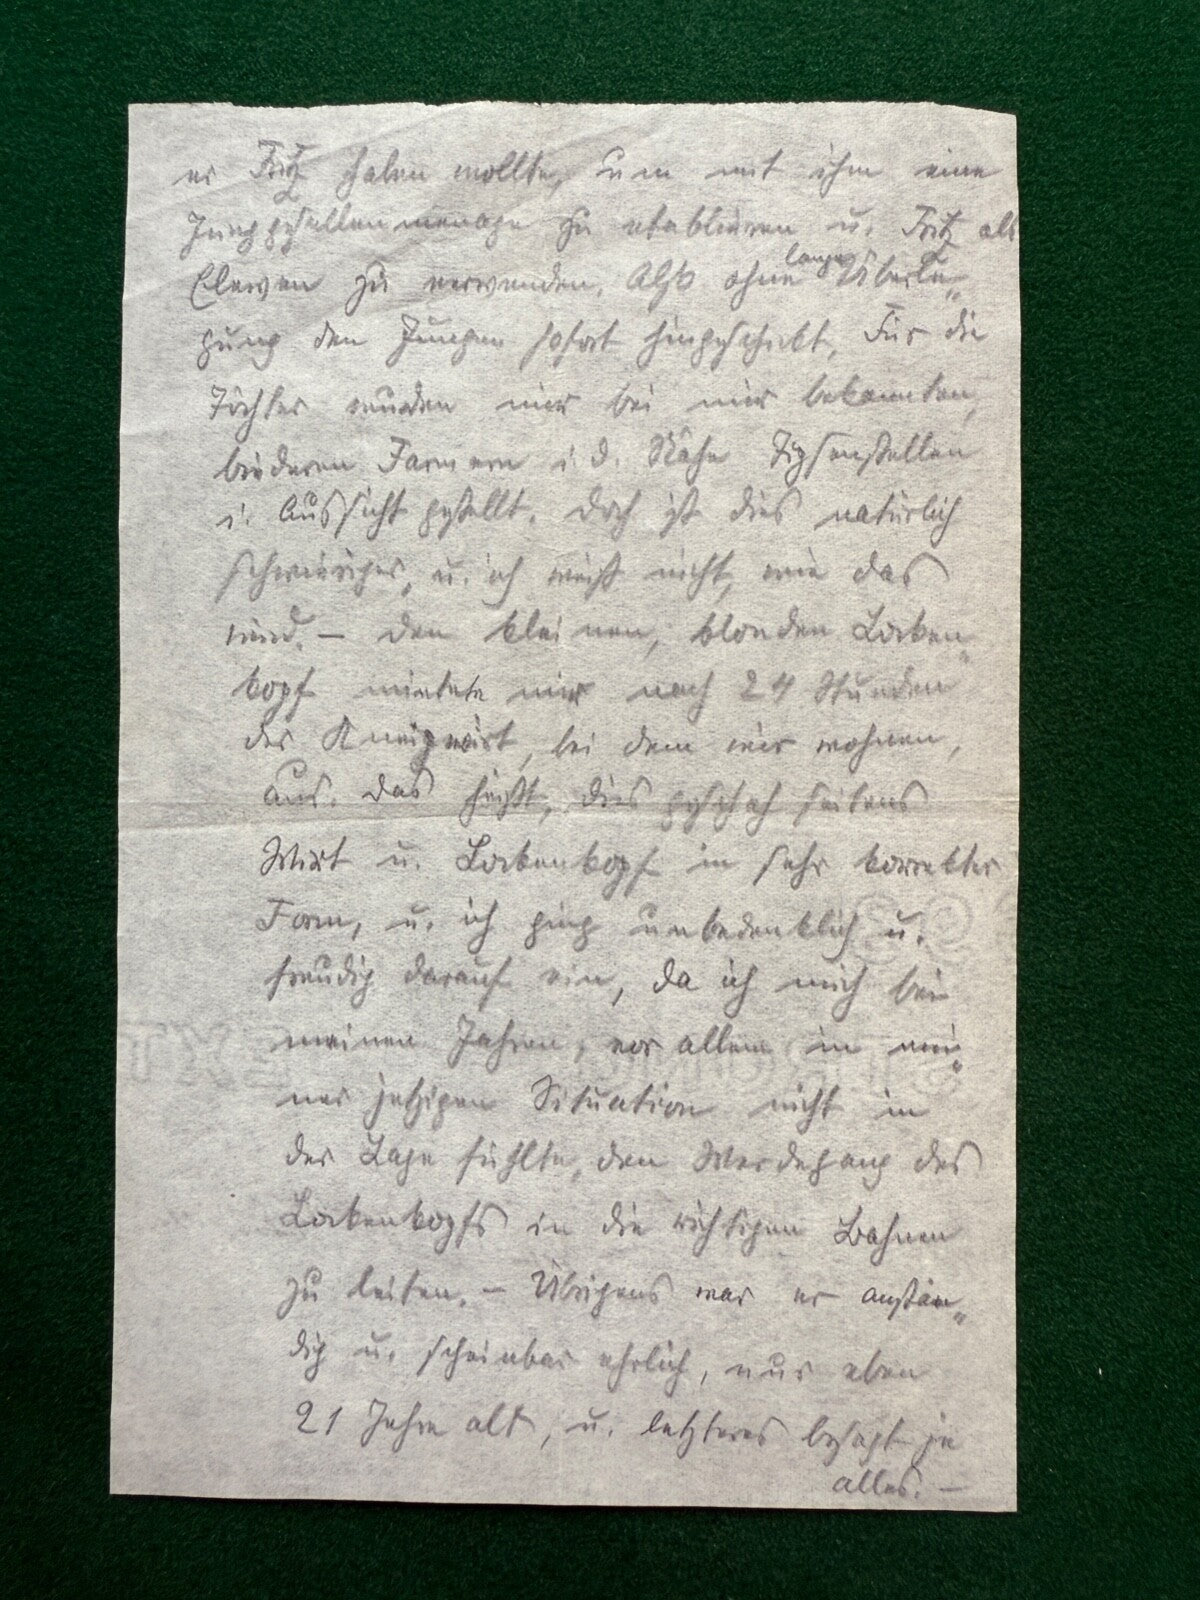 er Fritz haben wollte, um mit ihm eine
Junggesellenmenage zu etablieren u. Fritz als
Eleven zu verwenden. Also ohne lange Überle„
gung den Jungen sofort hingeschickt. Für die
Töchter wurden mir bei mir bekannten,
biederen Farmern i. d. Nähe
i. Aussicht gestellt. Doch ist dies natürlich
schwieriger, u. ich weiß nicht, wie das
wird. – Den kleinen, blonden Locken„
kopf mietete mir nach 24 Stunden
der Kneipwirt, bei dem wir wohnen,
aus. Das heißt, dies geschah seitens
Wirt u. Lockenkopf in sehr korrekter
Form, u. ich ging unbedenklich u.
freudig darauf ein, da ich mich bei
meinen Jahren, vor allem in mei„
ner jetzigen Situation nicht in
der Lage fühlte, den Werdegang des
Lockenkopfs in die richtigen Bahnen
zu leiten. – Übrigens war er anstän„
dig u. scheinbar ehrlich, nur eben
21 Jahre alt, u. letzteres besagt ja
alles. –